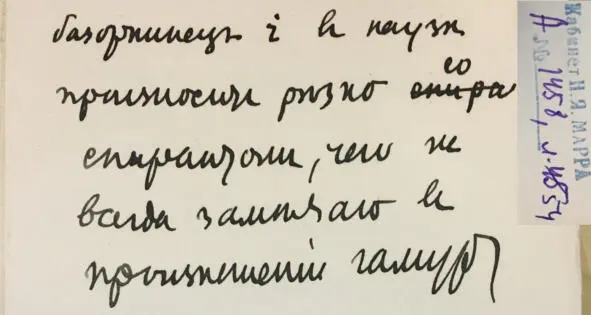 базоркинецъ i в
со
произноситъ рѣзко спира
спирантомъ, чего не
всегда замѣчаю в
произношеніи
Кабинет Н.Я. МАРРА
А № 1458, и. 4854